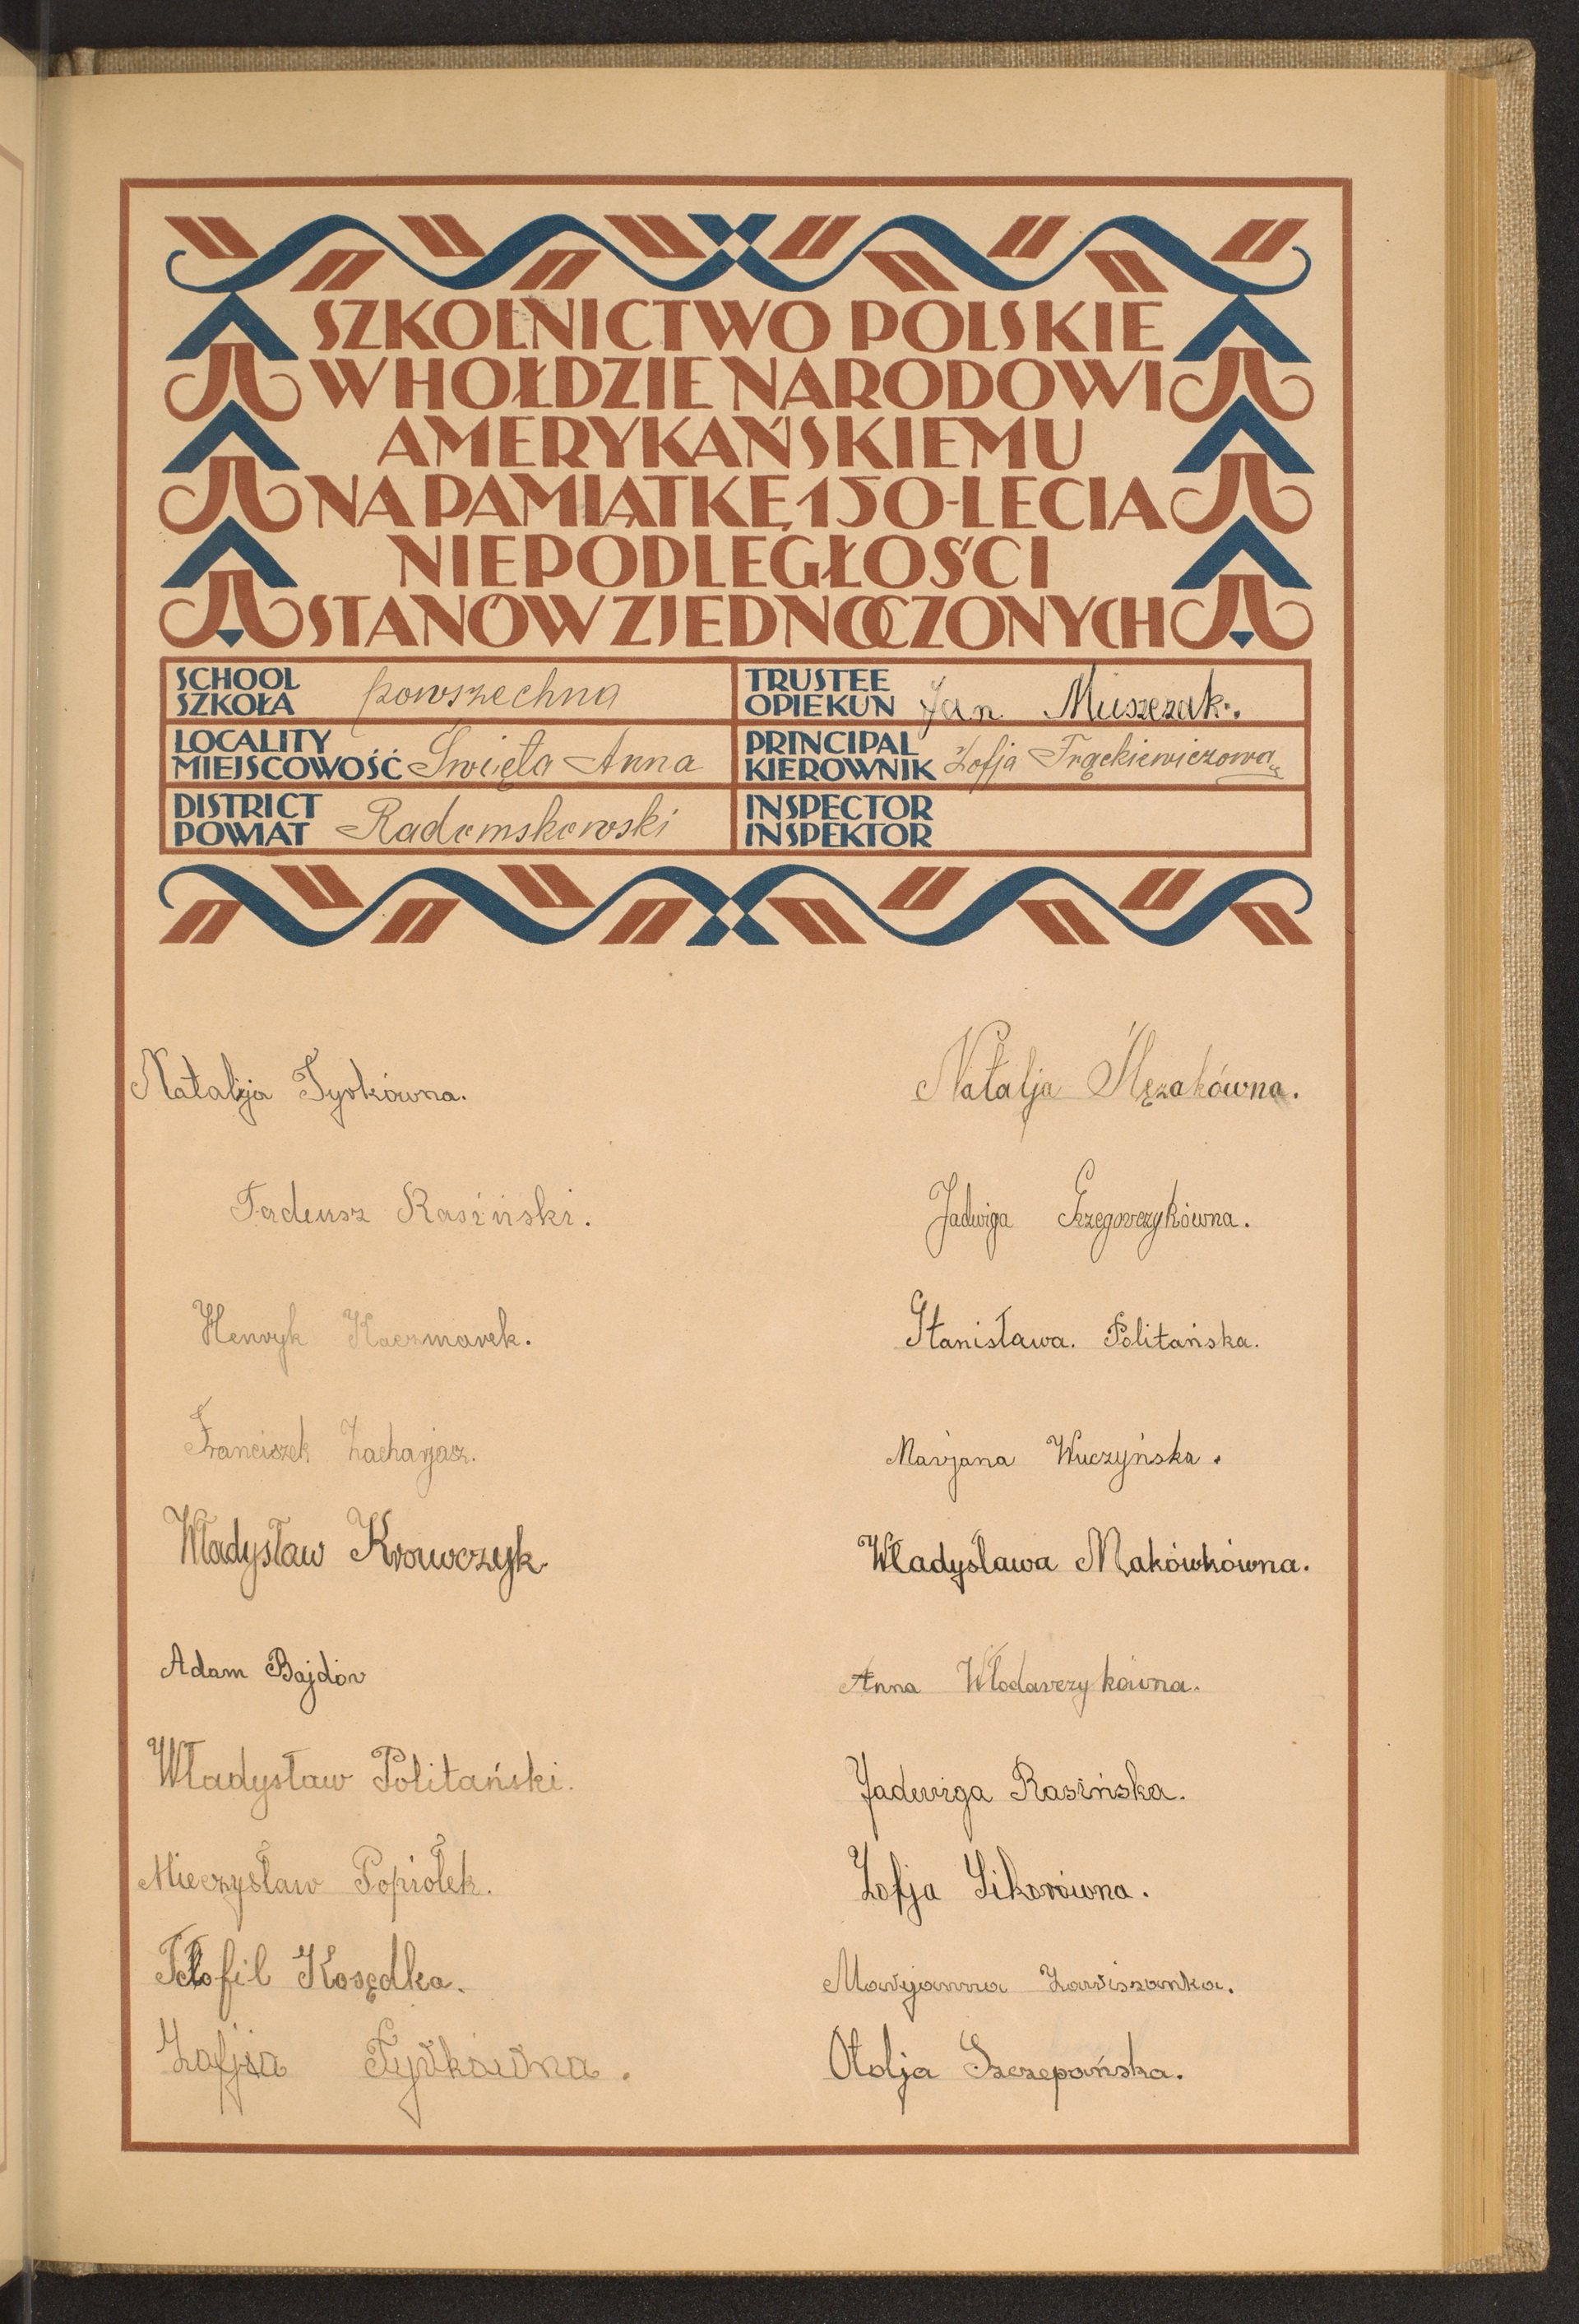 SZKOLNICTWO POLSKIE
W HOŁDZIE NARODOWI
AMERYKAŃSKIEMU
NA PAMIĄTKĘ 150-LECIA
NIEPODLEGŁOŚCI
STANÓW ZJEDNOCZONYCH
SCHOOL
SZKOŁA powszechna
TRUSTEE
OPIEKUN Jan Muszczak.
LOCALITY
MIEJSCOWOŚĆ Święta Anna
PRINCIPAL
KIEROWNIK Zofja Frąckiewiczowa
DISTRICT
POWIAT Radomskowski
INSPECTOR
INSPEKTOR
Natalja Tyrkówna.
Tadeusz Rasiński.
Henryk Kaczmarek.
Franciszek Zacharjasz.
Władysław Krawczyk.
Adam Bajdór
Władysław Politański.
Mieczysław Popiołek.
Teofil Kosędka.
Zofja Tyrkówna.
Natalja Ślęzakówna.
Jadwiga Grzegorczykówna.
Stanisława. Politańska.
Marjana Wuczyńska.
Władysława Makówkówna.
Anna Włodarczykówna.
Jadwiga Rasińska.
Zofja Sikorówna.
Marjanna Zawiszanka.
Otolja Szczepańska.